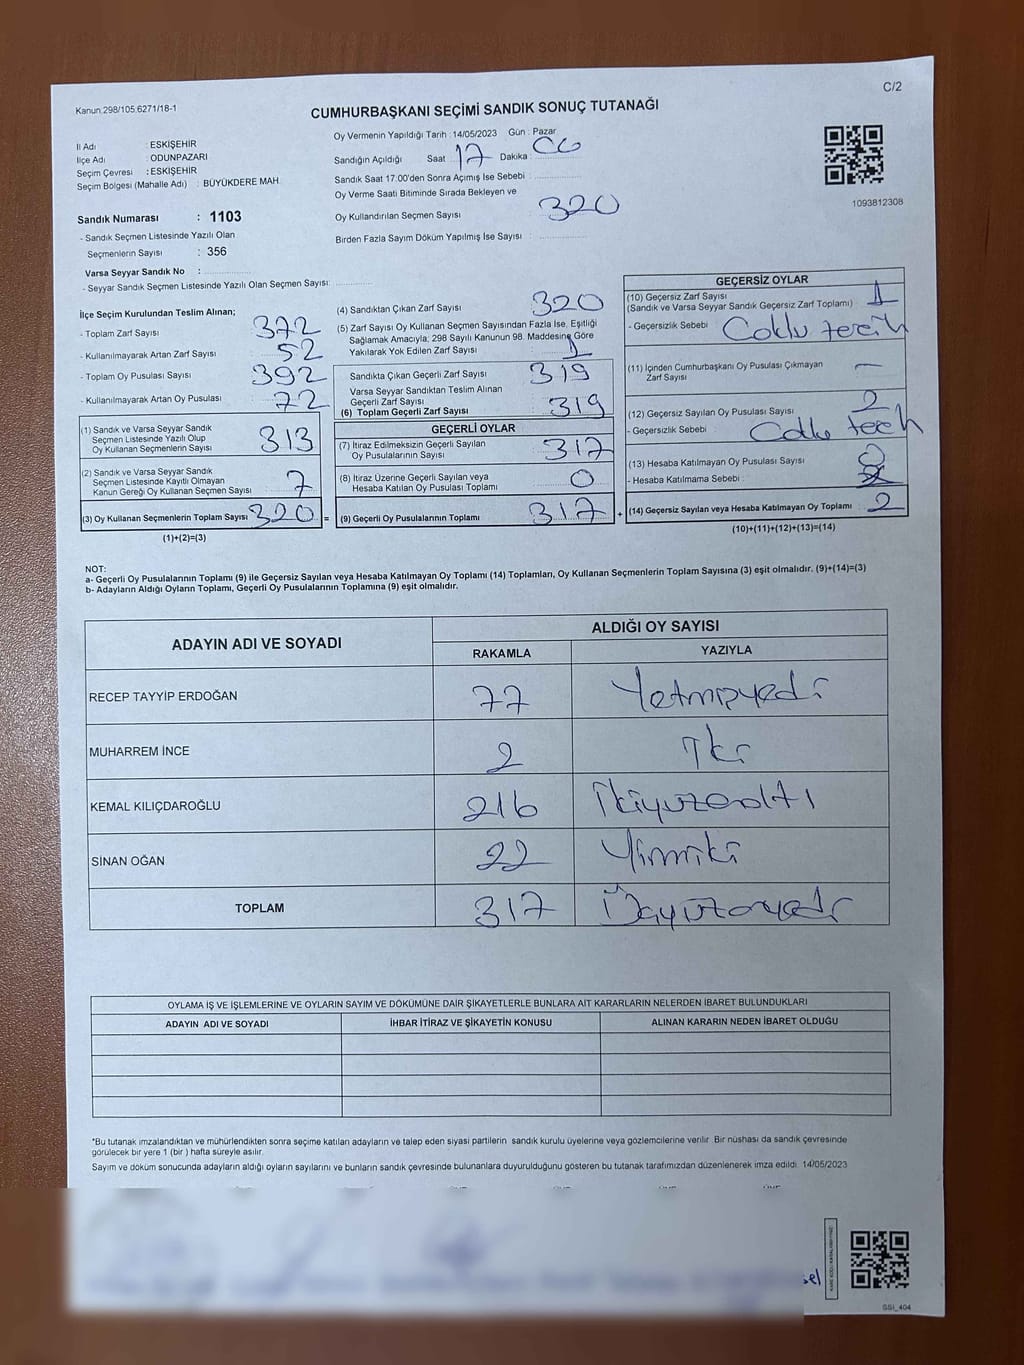 C/2
Kanun:298/105.6271/18-1
CUMHURBAŞKANI SEÇİMİ SANDIK SONUÇ TUTANAĞI
İl Adı : ESKİŞEHİR
İlçe Adı : ODUNPAZARI
Seçim Çevresi : ESKİŞEHİR
Seçim Bölgesi (Mahalle Adı) : BÜYÜKDERE MAH.
Sandık Numarası : 1103
- Sandık Seçmen Listesinde Yazılı Olan
Seçmenlerin Sayısı : 356
Varsa Seyyar Sandık No :
- Seyyar Sandık Seçmen Listesinde Yazılı Olan Seçmen Sayısı:
Oy Vermenin Yapıldığı Tarih : 14/05/2023 Gün : Pazar
Sandığın Açıldığı Saat 17 Dakika : 00
Sandık Saat 17:00'den Sonra Açımış İse Sebebi :
Oy Verme Saati Bitiminde Sırada Bekleyen ve
Oy Kullandırılan Seçmen Sayısı : 320
Birden Fazla Sayım Döküm Yapılmış İse Sayısı :
1093812308
İlçe Seçim Kurulundan Teslim Alınan;
- Toplam Zarf Sayısı : 372
- Kullanılmayarak Artan Zarf Sayısı : 52
- Toplam Oy Pusulası Sayısı : 392
- Kullanılmayarak Artan Oy Pusulası : 72
(1) Sandık ve Varsa Seyyar Sandık
Seçmen Listesinde Yazılı Olup
Oy Kullanan Seçmenlerin Sayısı : 313
(2) Sandık ve Varsa Seyyar Sandık
Seçmen Listesinde Kayıtlı Olmayan
Kanun Gereği Oy Kullanan Seçmen Sayısı : 7
(3) Oy Kullanan Seçmenlerin Toplam Sayısı : 320 =
(1)+(2)=(3)
(4) Sandıktan Çıkan Zarf Sayısı : 320
(5) Zarf Sayısı Oy Kullanan Seçmen Sayısından Fazla İse, Eşitliği
Sağlamak Amacıyla; 298 Sayılı Kanunun 98. Maddesine Göre
Yakılarak Yok Edilen Zarf Sayısı : 1
Sandıkta Çıkan Geçerli Zarf Sayısı : 319
Varsa Seyyar Sandıktan Teslim Alınan
Geçerli Zarf Sayısı
(6) Toplam Geçerli Zarf Sayısı : 319
GEÇERLİ OYLAR
(7) İtiraz Edilmeksizin Geçerli Sayılan
Oy Pusulalarının Sayısı : 317
(8) İtiraz Üzerine Geçerli Sayılan veya
Hesaba Katılan Oy Pusulası Toplamı : 0
(9) Geçerli Oy Pusulalarının Toplamı : 317 +
GEÇERSİZ OYLAR
(10) Geçersiz Zarf Sayısı
(Sandık ve Varsa Seyyar Sandık Geçersiz Zarf Toplamı) : 1
- Geçersizlik Sebebi : Coklu tercih
(11) İçinden Cumhurbaşkanı Oy Pusulası Çıkmayan
Zarf Sayısı : —
(12) Geçersiz Sayılan Oy Pusulası Sayısı : 2
- Geçersizlik Sebebi : Coklu terch
(13) Hesaba Katılmayan Oy Pusulası Sayısı : 0
- Hesaba Katılmama Sebebi :
(14) Geçersiz Sayılan veya Hesaba Katılmayan Oy Toplamı : 2
(10)+(11)+(12)+(13)=(14)
NOT:
a- Geçerli Oy Pusulalarının Toplamı (9) ile Geçersiz Sayılan veya Hesaba Katılmayan Oy Toplamı (14) Toplamları, Oy Kullanan Seçmenlerin Toplam Sayısına (3) eşit olmalıdır. (9)+(14)=(3)
b- Adayların Aldığı Oyların Toplamı, Geçerli Oy Pusulalarının Toplamına (9) eşit olmalıdır.
ADAYIN ADI VE SOYADI ALDIĞI OY SAYISI
RAKAMLA YAZIYLA
RECEP TAYYİP ERDOĞAN 77 Yetmişyedi
MUHARREM İNCE 2 iki
KEMAL KILIÇDAROĞLU 216 ikiyüzaltı
SİNAN OĞAN 22 Yirmiki
TOPLAM 317 Üçyüzonyedi
OYLAMA İŞ VE İŞLEMLERİNE VE OYLARIN SAYIM VE DÖKÜMÜNE DAİR ŞİKAYETLERLE BUNLARA AİT KARARLARIN NELERDEN İBARET BULUNDUKLARI
ADAYIN ADI VE SOYADI İHBAR İTİRAZ VE ŞİKAYETİN KONUSU ALINAN KARARIN NEDEN İBARET OLDUĞU
*Bu tutanak imzalandıktan ve mühürlendikten sonra seçime katılan adayların ve talep eden siyasi partilerin sandık kurulu üyelerine veya gözlemcilerine verilir. Bir nüshası da sandık çevresinde
görülecek bir yere 1 (bir ) hafta süreyle asılır.
Sayım ve döküm sonucunda adayların aldığı oyların sayılarını ve bunların sandık çevresinde bulunanlara duyurulduğunu gösteren bu tutanak tarafımızdan düzenlenerek imza edildi. 14/05/2023
SSI_404